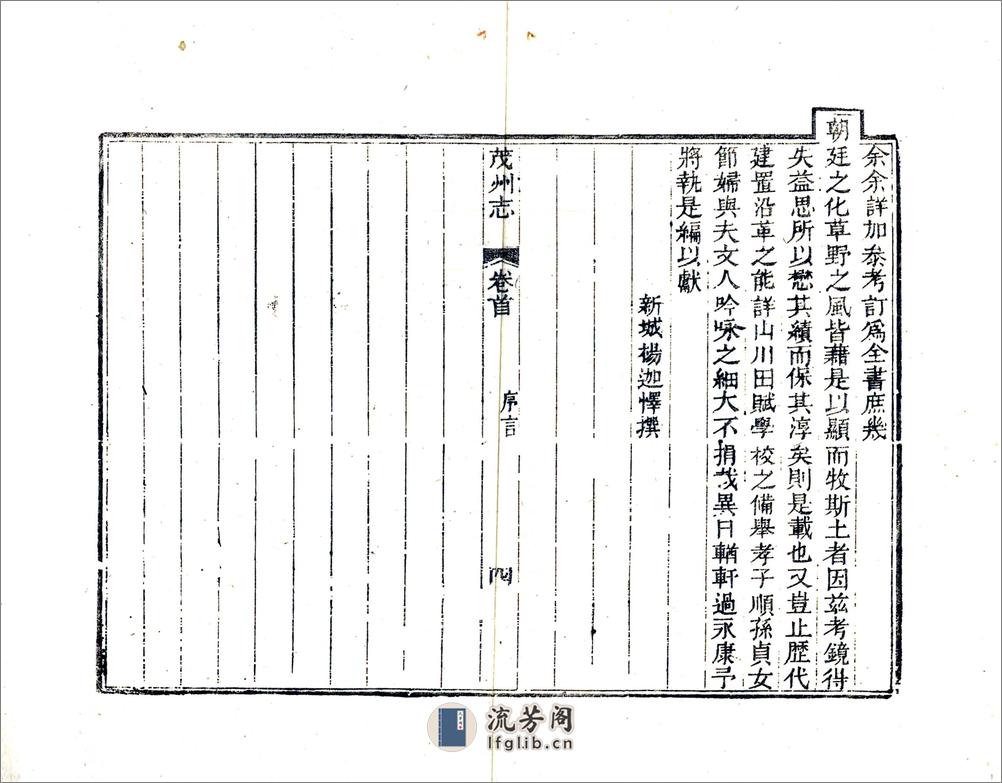 余余詳加叅考訂爲全書庶幾
朝廷之化草野之風皆藉是以顯而牧斯土者因茲考鏡得
失益思所以懋其績而保其淳矣則是載也又豈止歷代
建置沿革之能詳山川田賦學校之備舉孝子順孫貞女
節婦與夫文人吟咏之細大不捐哉異日輶軒過永康予
將執是編以獻
新城楊迦懌撰
茂州志
卷首
序言
四
流芳阁
lfglib.cn